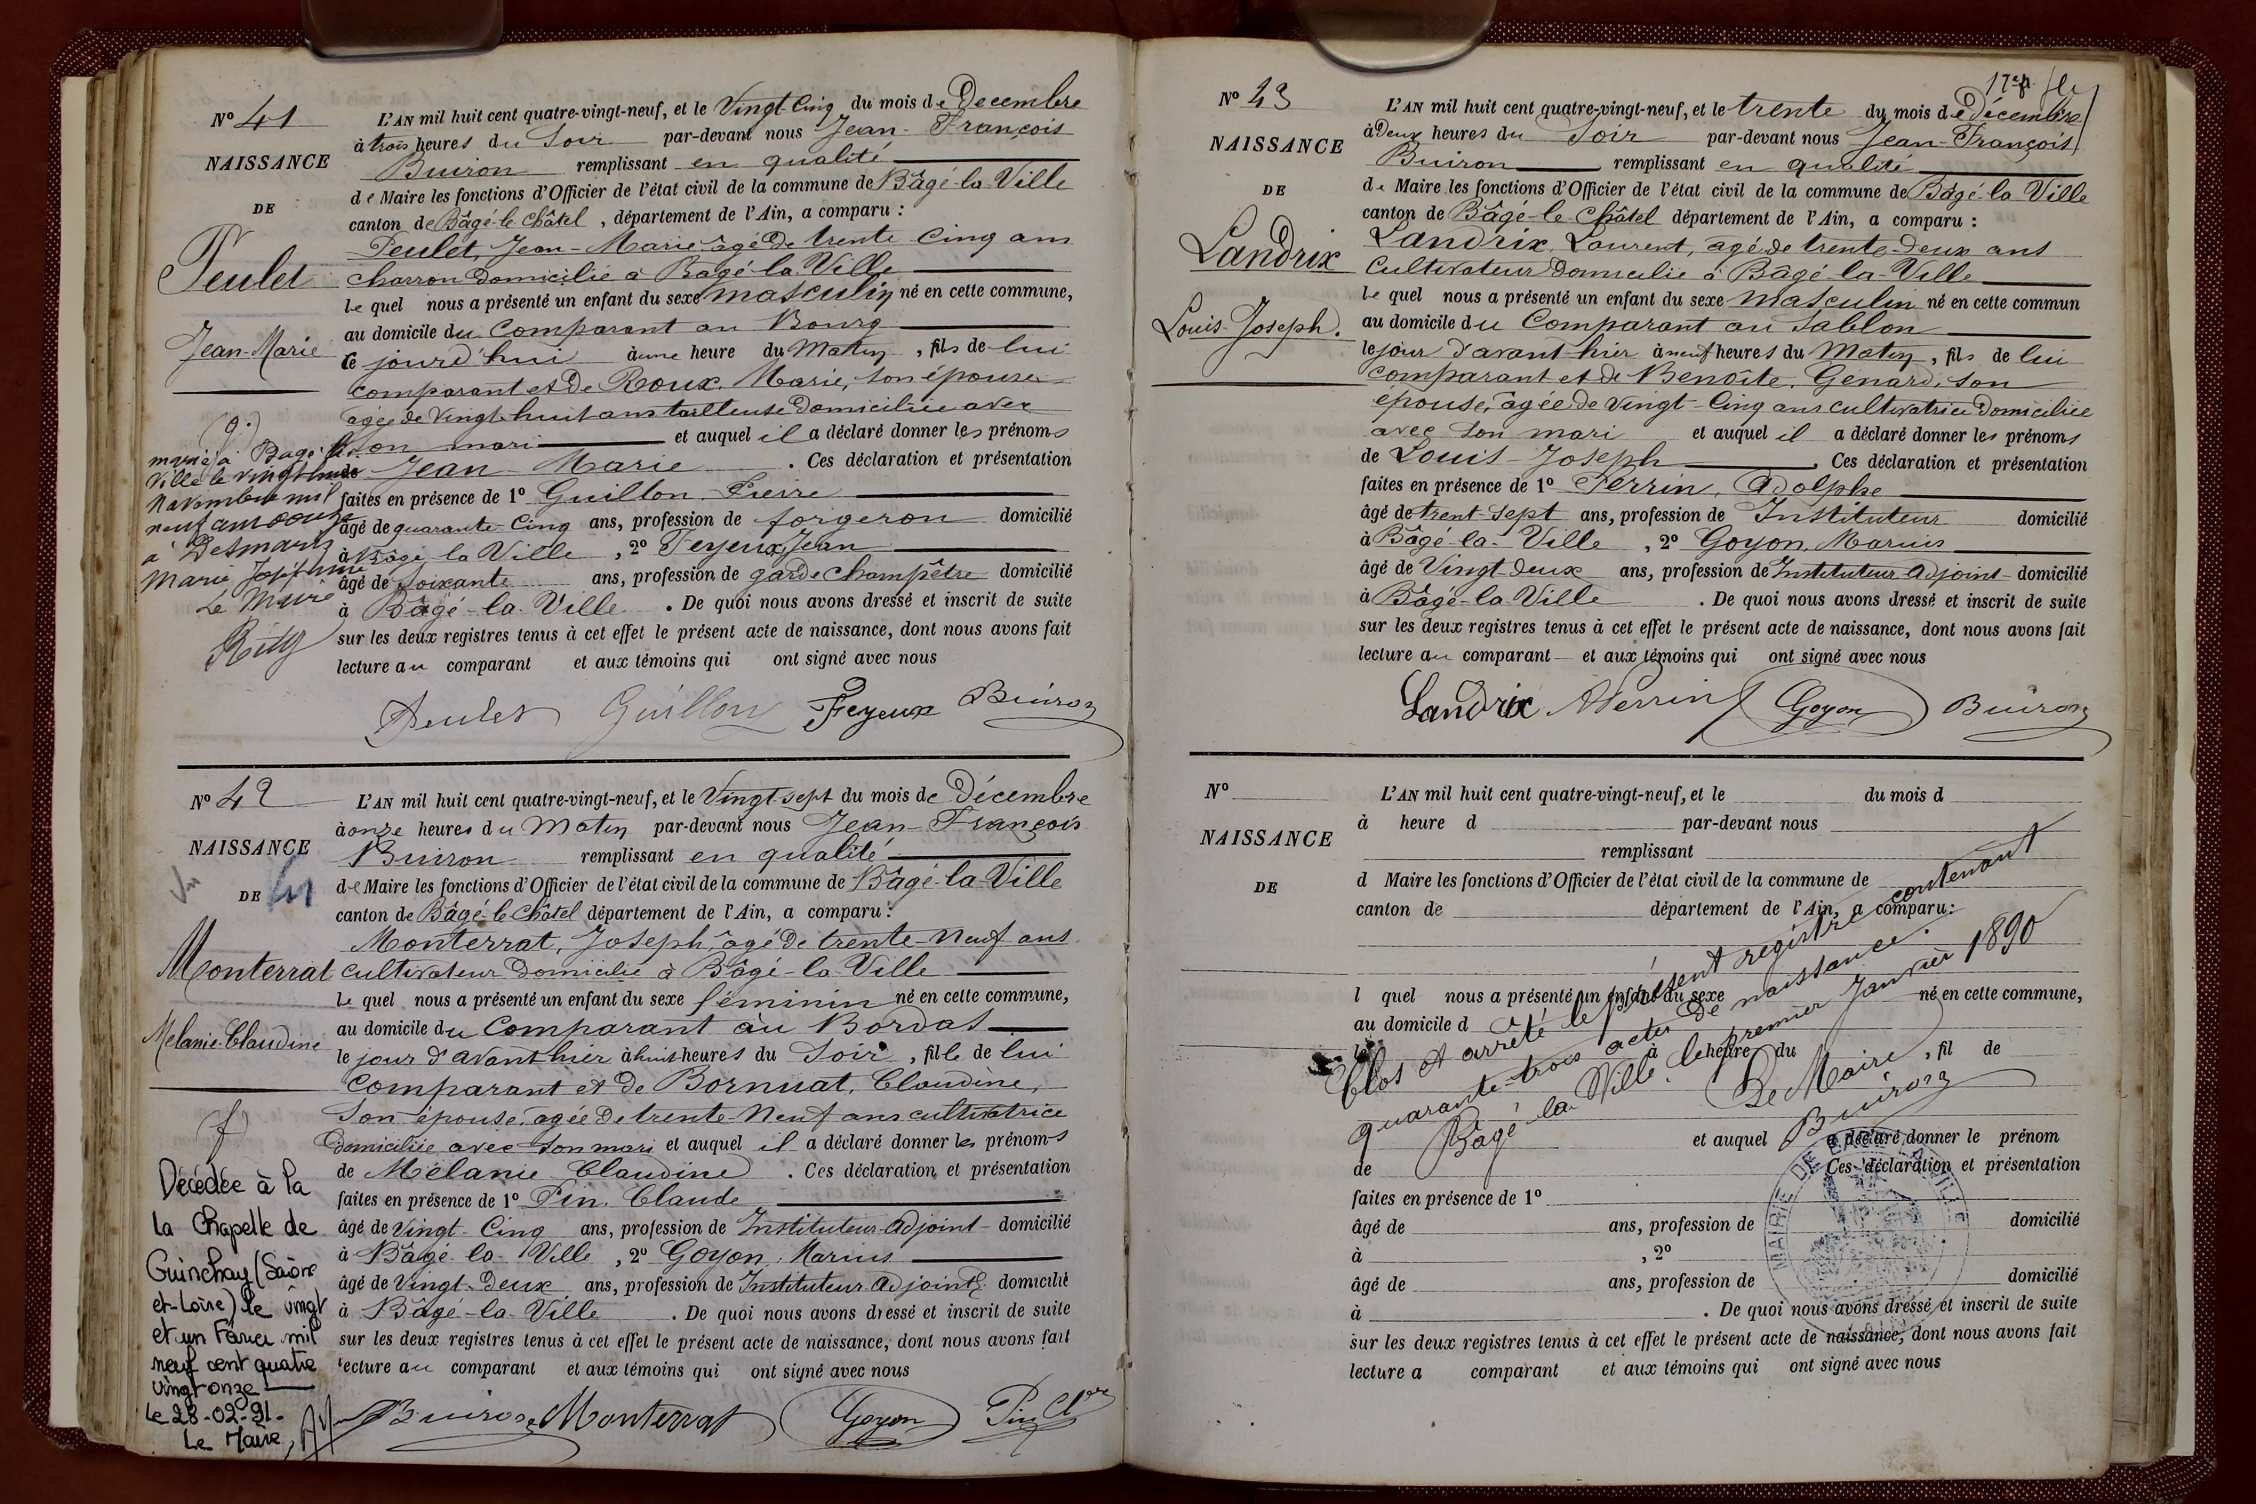 Nº 41
NAISSANCE
DE
Peulet
Jean-Marie
L'AN mil huit cent quatre-vingt-neuf, et le Vingt Cinq du mois de Decembre
à trois heures du Soir par-devant nous Jean-François
Buiron remplissant en qualité
de Maire les fonctions d'Officier de l'état civil de la commune de Bâgé-la-Ville
canton de Bâgé-le-Châtel, département de l'Ain, a comparu :
Peulet, Jean-Marie âgé de trente Cinq ans
charron domicilié à Bâgé-la-Ville
le quel nous a présenté un enfant du sexe masculin né en cette commune,
au domicile du Comparant au Bourg
ce jourd'hui à une heure du Matin, fils de lui
comparant et de Roux, Marie, son épouse
agée de Vingt-huit ans tailleuse domiciliée avec
son mari et auquel il a déclaré donner les prénoms
de Jean Marie. Ces déclaration et présentation
faites en présence de 1º Guillon, Pierre
âgé de quarante-Cinq ans, profession de forgeron domicilié
à Bâgé la Ville, 2º Feyeux, Jean
âgé de soixante ans, profession de garde Champêtre domicilié
à Bâgé-la-Ville. De quoi nous avons dressé et inscrit de suite
sur les deux registres tenus à cet effet le présent acte de naissance, dont nous avons fait
lecture au comparant et aux témoins qui ont signé avec nous
Peulet Guillon Feyeux Buiron
marié à Bagé la
Ville le vingt
Novembre mil
neuf cent
à Desmaris
Marie Joséphine
Le Maire
Nº 42
NAISSANCE
DE
Monterrat
Mélanie-Claudine
L'AN mil huit cent quatre-vingt-neuf, et le Vingt-sept du mois de Décembre
à onze heures du Matin par-devant nous Jean-François
Buiron remplissant en qualité
de Maire les fonctions d'Officier de l'état civil de la commune de Bâgé-la-Ville
canton de Bâgé-le-Châtel département de l'Ain, a comparu :
Monterrat, Joseph, âgé de trente-Neuf ans
cultivateur domicilié à Bâgé-la-Ville
le quel nous a présenté un enfant du sexe féminin né en cette commune,
au domicile du Comparant au Bordas
le jour d'avant hier à huit heures du Soir, fille de lui
comparant et de Bornuat, Claudine,
son épouse, agée de trente-Neuf ans cultivatrice
domiciliée avec son mari et auquel il a déclaré donner les prénoms
de Mélanie Claudine. Ces déclaration et présentation
faites en présence de 1º Pin, Claude
âgé de Vingt-Cinq ans, profession de Instituteur-Adjoint domicilié
à Bâgé-la-Ville, 2º Goyon, Marius
âgé de Vingt-Deux ans, profession de Instituteur Adjoint domicilié
à Bâgé-la-Ville. De quoi nous avons dressé et inscrit de suite
sur les deux registres tenus à cet effet le présent acte de naissance, dont nous avons fait
lecture au comparant et aux témoins qui ont signé avec nous
Buiron Monterrat Goyon Pin Cl
Décédée à la
la Chapelle de
Guinchay (Saône
et-Loire) le vingt
et un Février mil
neuf cent quatre
vingt onze
Le 28-02-91-
Le Maire,
Nº 43
NAISSANCE
DE
Landrix
Louis-Joseph.
L'AN mil huit cent quatre-vingt-neuf, et le trente du mois de décembre
à Deux heures du Soir par-devant nous Jean-François
Buiron remplissant en qualité
de Maire les fonctions d'Officier de l'état civil de la commune de Bâgé-la-Ville
canton de Bâgé-le-Châtel département de l'Ain, a comparu :
Landrix, Laurent, âgé de trente-deux ans
Cultivateur domicilié à Bâgé-la-Ville
le quel nous a présenté un enfant du sexe masculin né en cette commun
au domicile du Comparant au Sablon
le jour d'avant hier à neuf heures du Matin, fils de lui
comparant et de Benoîte, Genard, son
épouse, âgée de Vingt-Cinq ans cultivatrice domiciliée
avec son mari et auquel il a déclaré donner les prénoms
de Louis-Joseph. Ces déclaration et présentation
faites en présence de 1º Perrin, Adolphe
âgé de trent-sept ans, profession de Instituteur domicilié
à Bâgé-la-Ville, 2º Goyon, Marius
âgé de Vingt-deux ans, profession de Instituteur-Adjoint domicilié
à Bâgé-la-Ville. De quoi nous avons dressé et inscrit de suite
sur les deux registres tenus à cet effet le présent acte de naissance, dont nous avons fait
lecture au comparant et aux témoins qui ont signé avec nous
Landrix APerrin Goyon Buiron
Nº
NAISSANCE
DE
L'AN mil huit cent quatre-vingt-neuf, et le du mois d
à heure d par-devant nous
remplissant
d Maire les fonctions d'Officier de l'état civil de la commune de
canton de département de l'Ain, a comparu :
l quel nous a présenté un enfant du sexe né en cette commune,
au domicile d
le à heure du , fil de
et auquel a déclaré donner le prénom
de Ces déclaration et présentation
faites en présence de 1º
âgé de ans, profession de domicilié
à , 2º
âgé de ans, profession de domicilié
à . De quoi nous avons dressé et inscrit de suite
sur les deux registres tenus à cet effet le présent acte de naissance, dont nous avons fait
lecture a comparant et aux témoins qui ont signé avec nous
Clos et arrêté le présent registre contenant
quarante-trois actes de naissance.
Bâgé-la-Ville, le premier Janvier 1890
Le Maire
Buiron